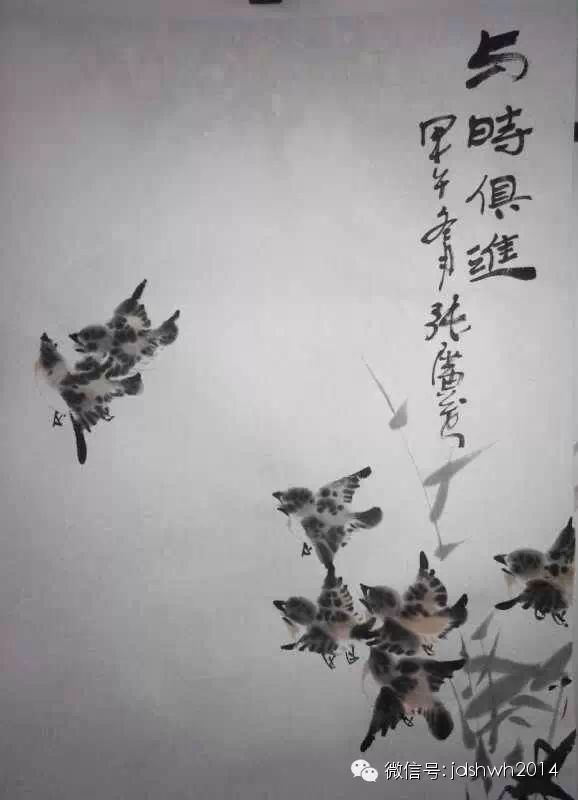 与時俱進
甲午冬月張廣萬
微信号: jdshwh2014